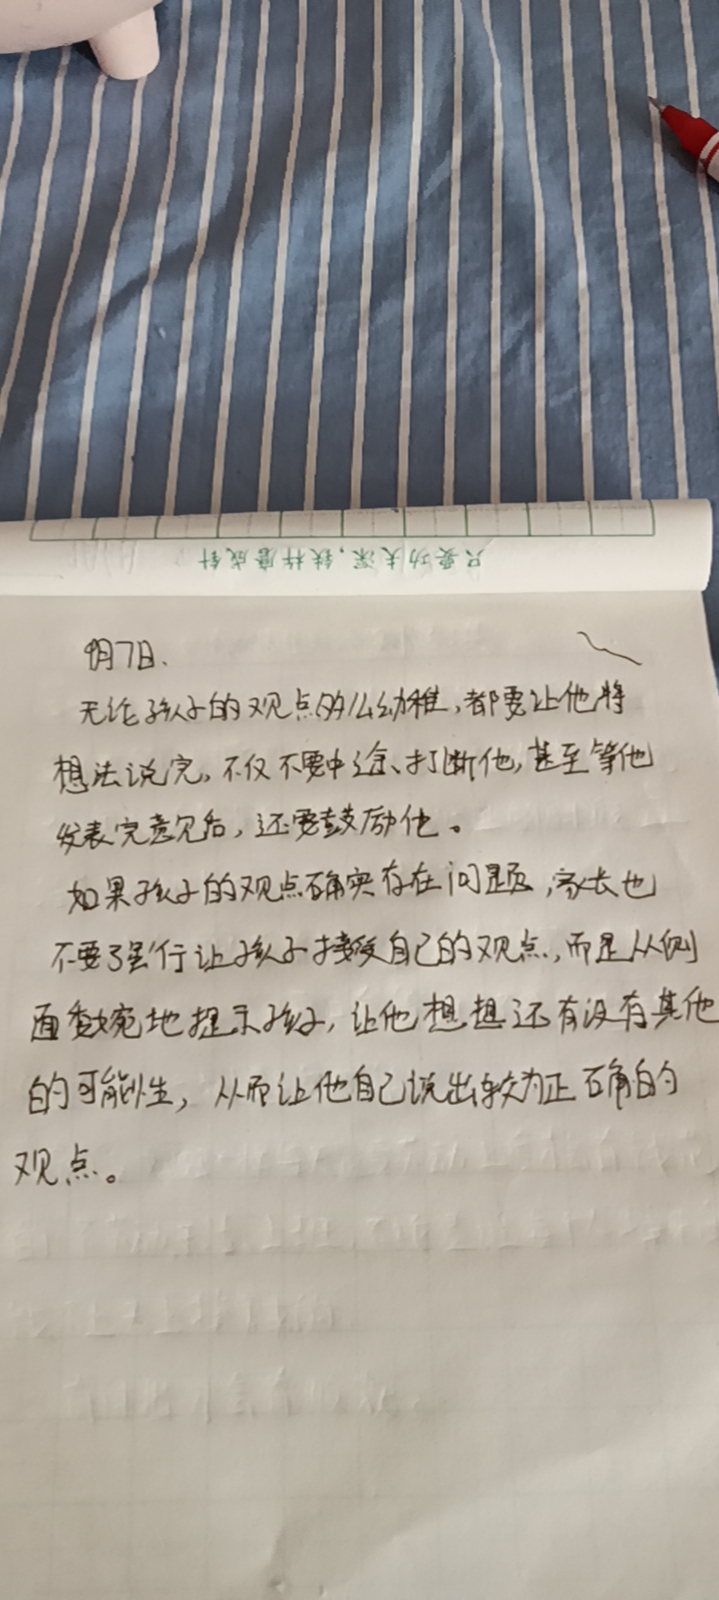 只要功夫深，铁杵磨成针
月7日.
无论孩子的观点多么幼稚，都要让他将
想法说完，不仅不要中途、打断他，甚至等他
发表完意见后，还要鼓励他。
如果孩子的观点确实存在问题，家长也
不要强行让孩子接受自己的观点，而是从侧
面委婉地提示孩子，让他想想还有没有其他
的可能性，从而让他自己说出较为正确的
观点。